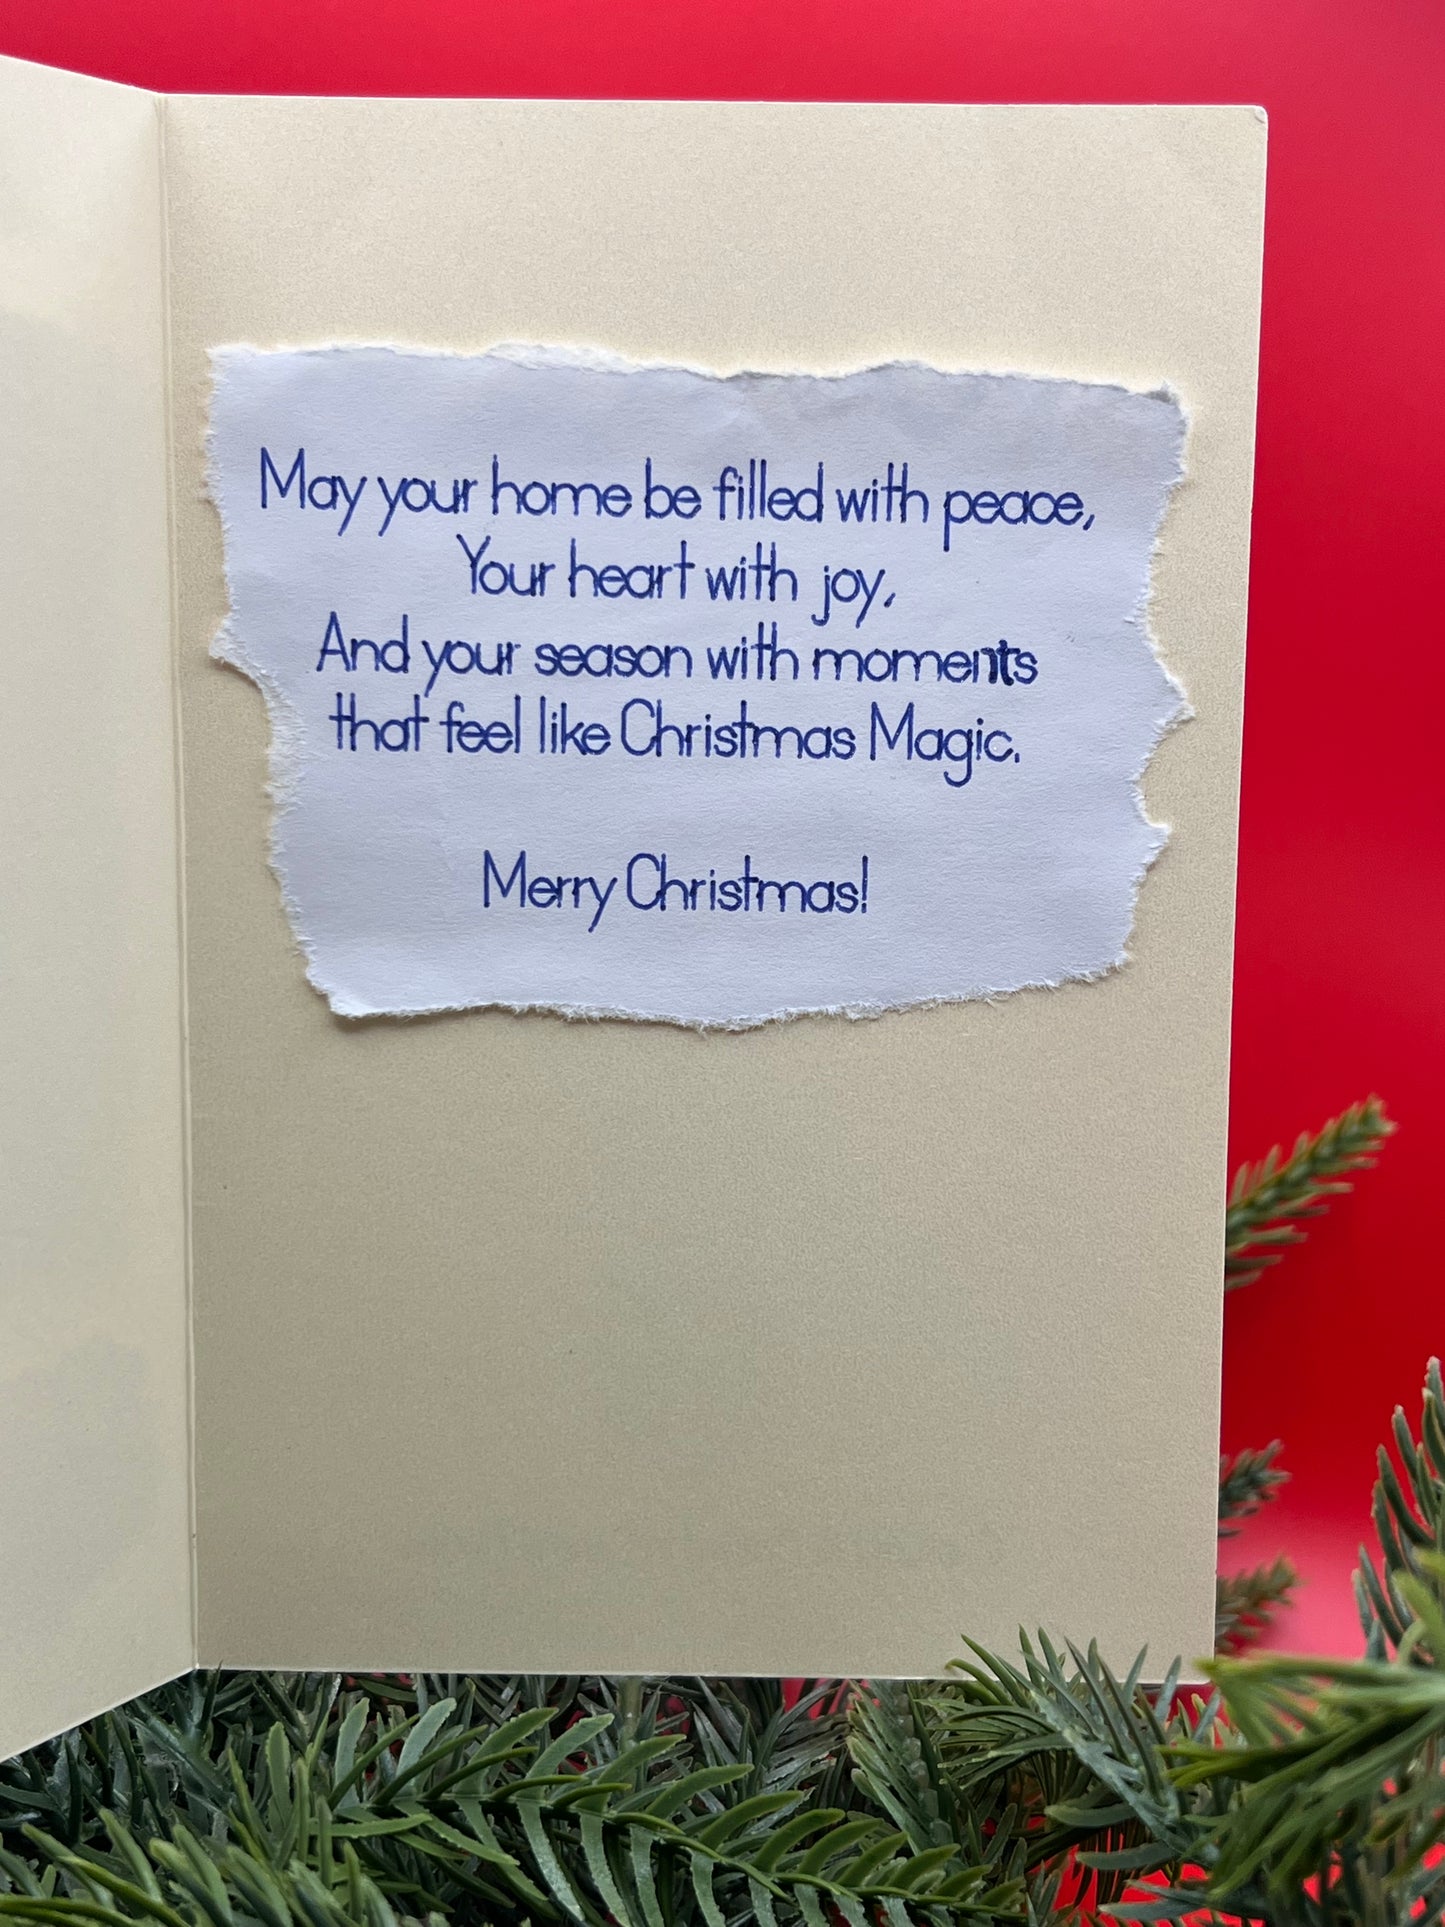 May your home be filled with peace,
Your heart with joy,
And your season with moments
that feel like Christmas Magic.
Merry Christmas!